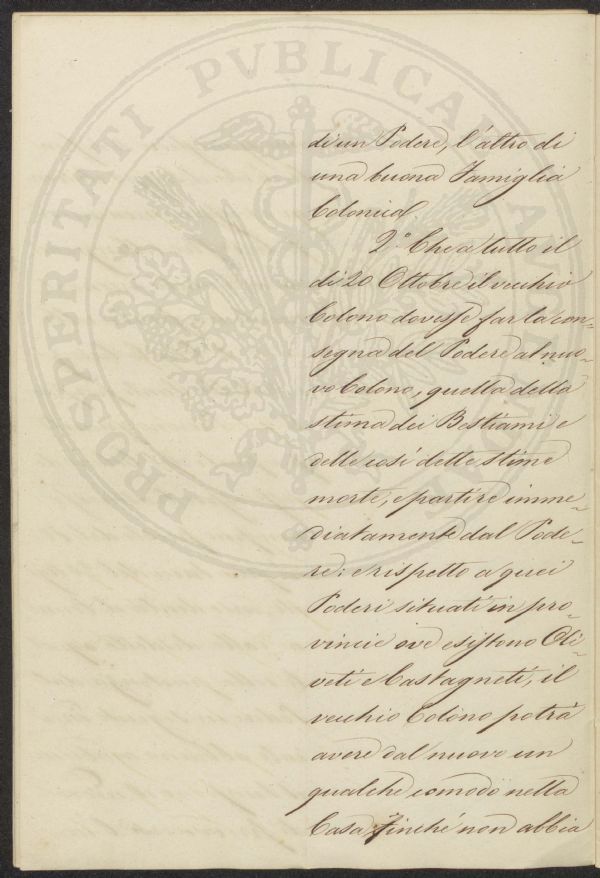 di un Podere, l'altro di
una buona Famiglia
Colonica.
2.° Che a tutto il
di 20 Ottobre il vecchio
Colono dovesse far la con-
segna del Podere al nuo-
vo Colono, quella della
stima dei Bestiami e
delle così dette stime
morte, e partire imme-
diatamente dal Pode-
re: e rispetto a quei
Poderi situati in pro-
vincie ove esistono Oli-
veti e Castagneti, il
vecchio Colono potrà
avere dal nuovo un
qualche comodo nella
Casa, finché non abbia
PROSPERITATI PVBLICAE AVGENDAE